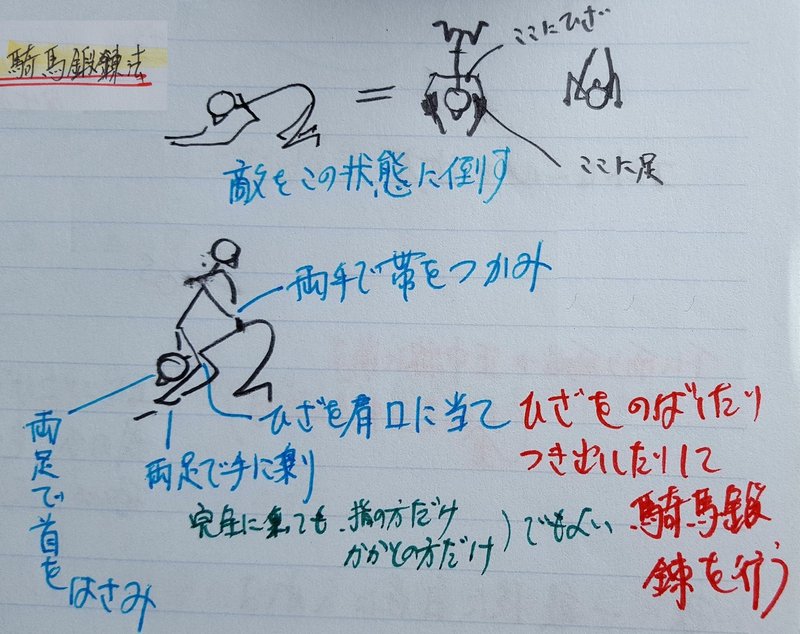 騎馬鍛錬法
=
ここにひざ
ここに足
敵をこの状態に倒す
両手で帯をつかみ
ひざを肩口に当て
両足で手に乗り
両足で首をはさみ
完全に乗っても、指の方だけ
かかとの方だけ)でもよい
ひざをのばしたり
つき出したりして
騎馬鍛
錬を行う